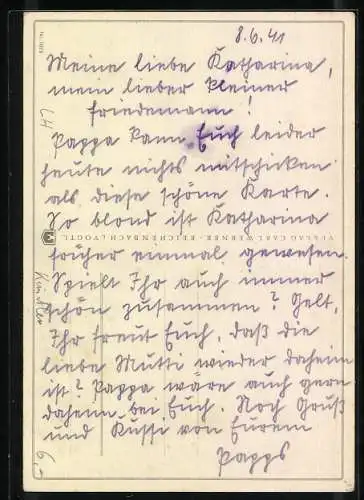 8.6.41
Meine liebe Katharina,
mein lieber kleiner
Friedemann!
Pappa kann Euch leider
heute nichts mitschicken
als diese schöne Karte.
So blond ist Katharina
VERLAG CARL WERNER · REICHENBACH i. VOGTL.
früher einmal gewesen.
Spielt Ihr auch immer
schön zusammen? Gelt,
Ihr freut Euch, daß die
liebe Mutti wieder daheim
ist? Pappa wäre auch gern
daheim bei Euch. Noch Gruß
und Kussi von Eurem
Papps
LH
Kinder
6,-